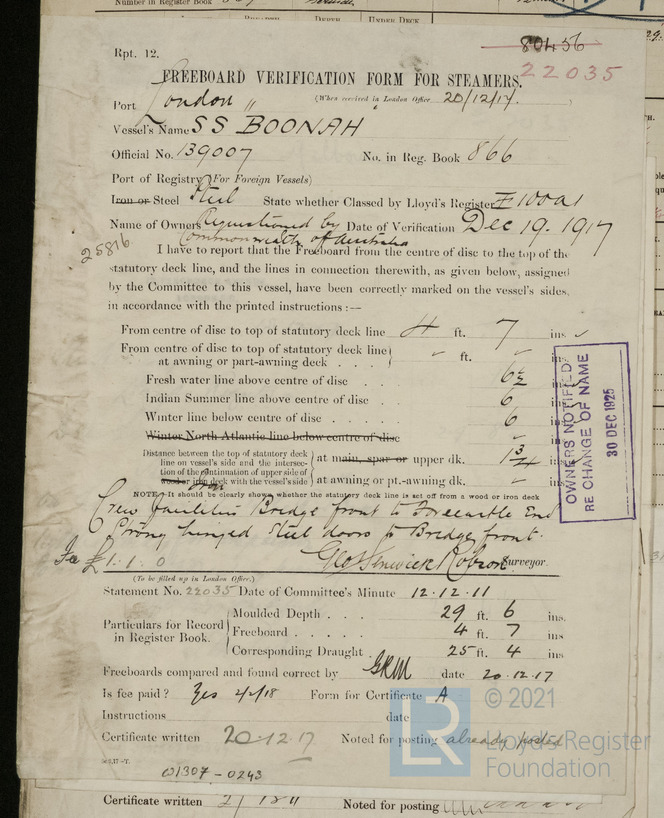 Number in Register Book
UNDER DECK
80456
Rpt. 12.
22035
FREEBOARD VERIFICATION FORM FOR STEAMERS.
Port London " (When received in London Office 20/12/17.)
Vessel's Name SS BOONAH
Official No. 139007 No. in Reg. Book 866
Port of Registry (For Foreign Vessels)
Iron or Steel Steel State whether Classed by Lloyd's Register 100A1
Name of Owners Requisitioned by Date of Verification Dec 19. 1917
Commonwealth of Australia
25816
I have to report that the Freeboard from the centre of disc to the top of the
statutory deck line, and the lines in connection therewith, as given below, assigned
by the Committee to this vessel, have been correctly marked on the vessel's sides,
in accordance with the printed instructions :—
From centre of disc to top of statutory deck line 4 ft. 7 ins.
From centre of disc to top of statutory deck line
at awning or part-awning deck . . . ft.
Fresh water line above centre of disc . . 6½
Indian Summer line above centre of disc . . 6
Winter line below centre of disc . . . 6
Winter North Atlantic line below centre of disc
Distance between the top of statutory deck
line on vessel's side and the intersec-
tion of the continuation of upper side of
wood or iron deck with the vessel's side
at main, spar or upper dk. 1¾
at awning or pt.-awning dk.
NOTE.—It should be clearly shown whether the statutory deck line is set off from a wood or iron deck
OWNERS NOTIFIED
RE CHANGE OF NAME
30 DEC 1925
Crew facilities Bridge front to Forecastle End
Strong hinged Steel doors to Bridge front.
Fee £1. 1. 0 Geo Fenwick Robson Surveyor.
(To be filled up in London Office.)
Statement No. 22035 Date of Committee's Minute 12.12.11
Particulars for Record
in Register Book.
Moulded Depth . . . 29 ft. 6 ins.
Freeboard . . . . . 4 ft. 7 ins
Corresponding Draught . 25 ft. 4 ins
Freeboards compared and found correct by GRM date 20.12.17
Is fee paid? Yes 4/2/18 Form for Certificate A
Instructions date
Certificate written 20.12.17 Noted for posting already posted
© 2021
LR
Lloyd's Register
Foundation
W1307-0243
Certificate written Noted for posting